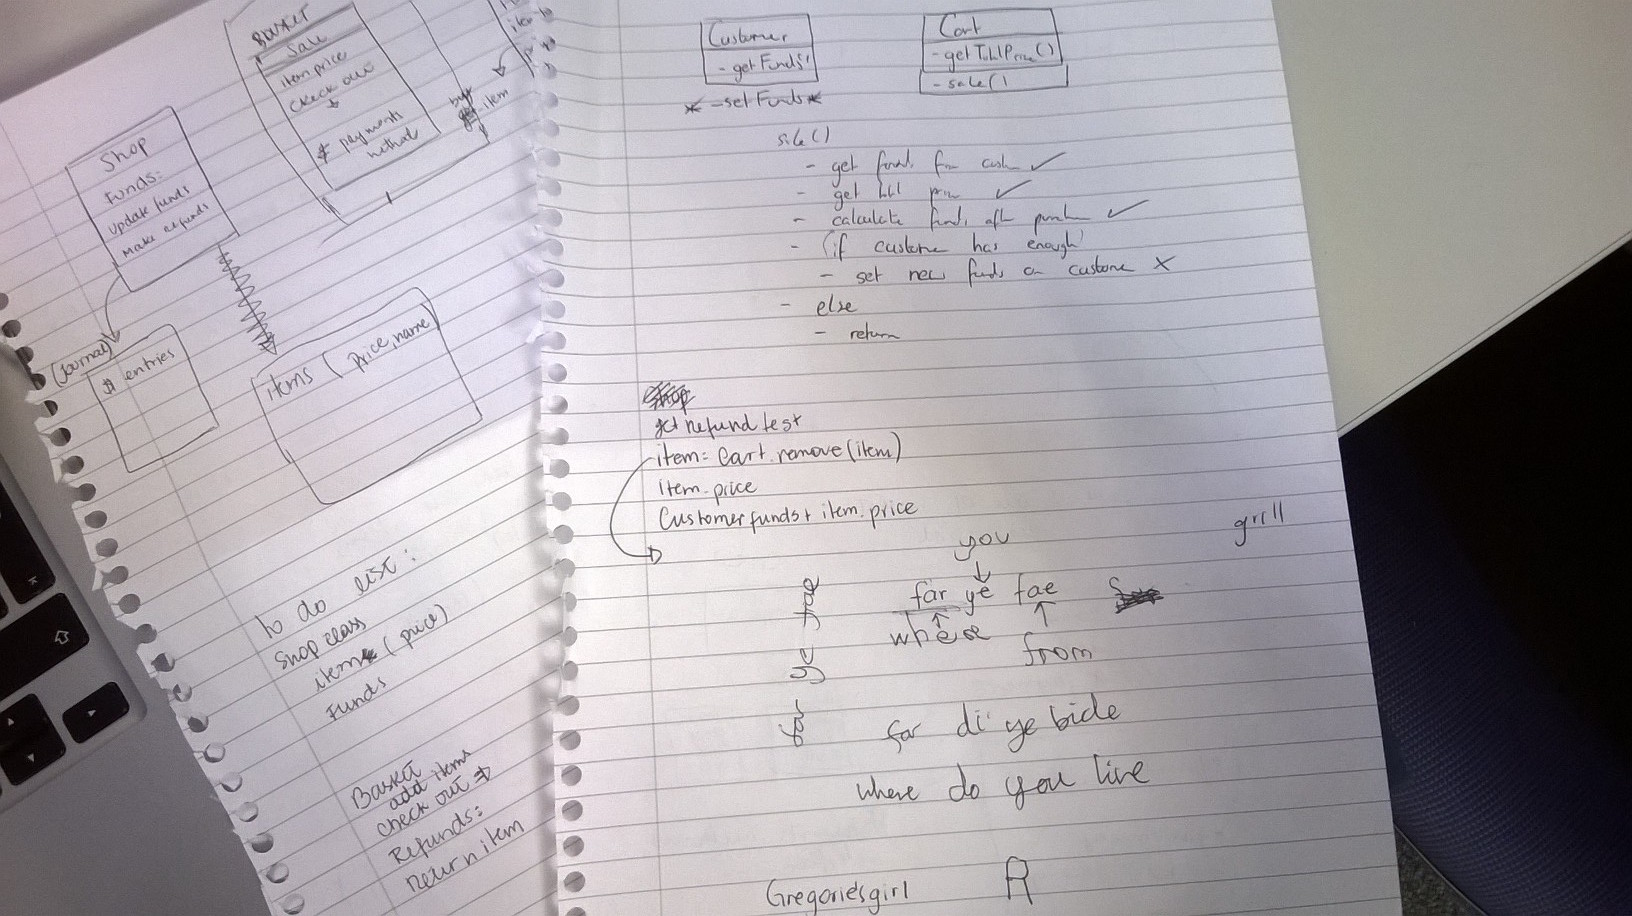 Basket
Sale
item price
check out
$ payments
method
item
Shop
Funds:
update funds
make refunds
(Journal)
$ entries
items ( price, name)
to do list:
Shop class
item (price)
Funds
Basket
add items
check out →
Refunds:
return item
Customer
- getFunds'
* - setFunds *
Cart
- getTotlPrice()
- sale()
sale()
- get funds from cush ✓
- get ttl price ✓
- calculate funds aft purch ✓
- (if custome has enough)
- set new funds on custome X
- else
- return
get refund test
item = cart.remove(item)
item.price
Customer funds + item.price
you
grill
far ye fae
where
from
far di ye bide
where do you live
Gregorie's girl
R